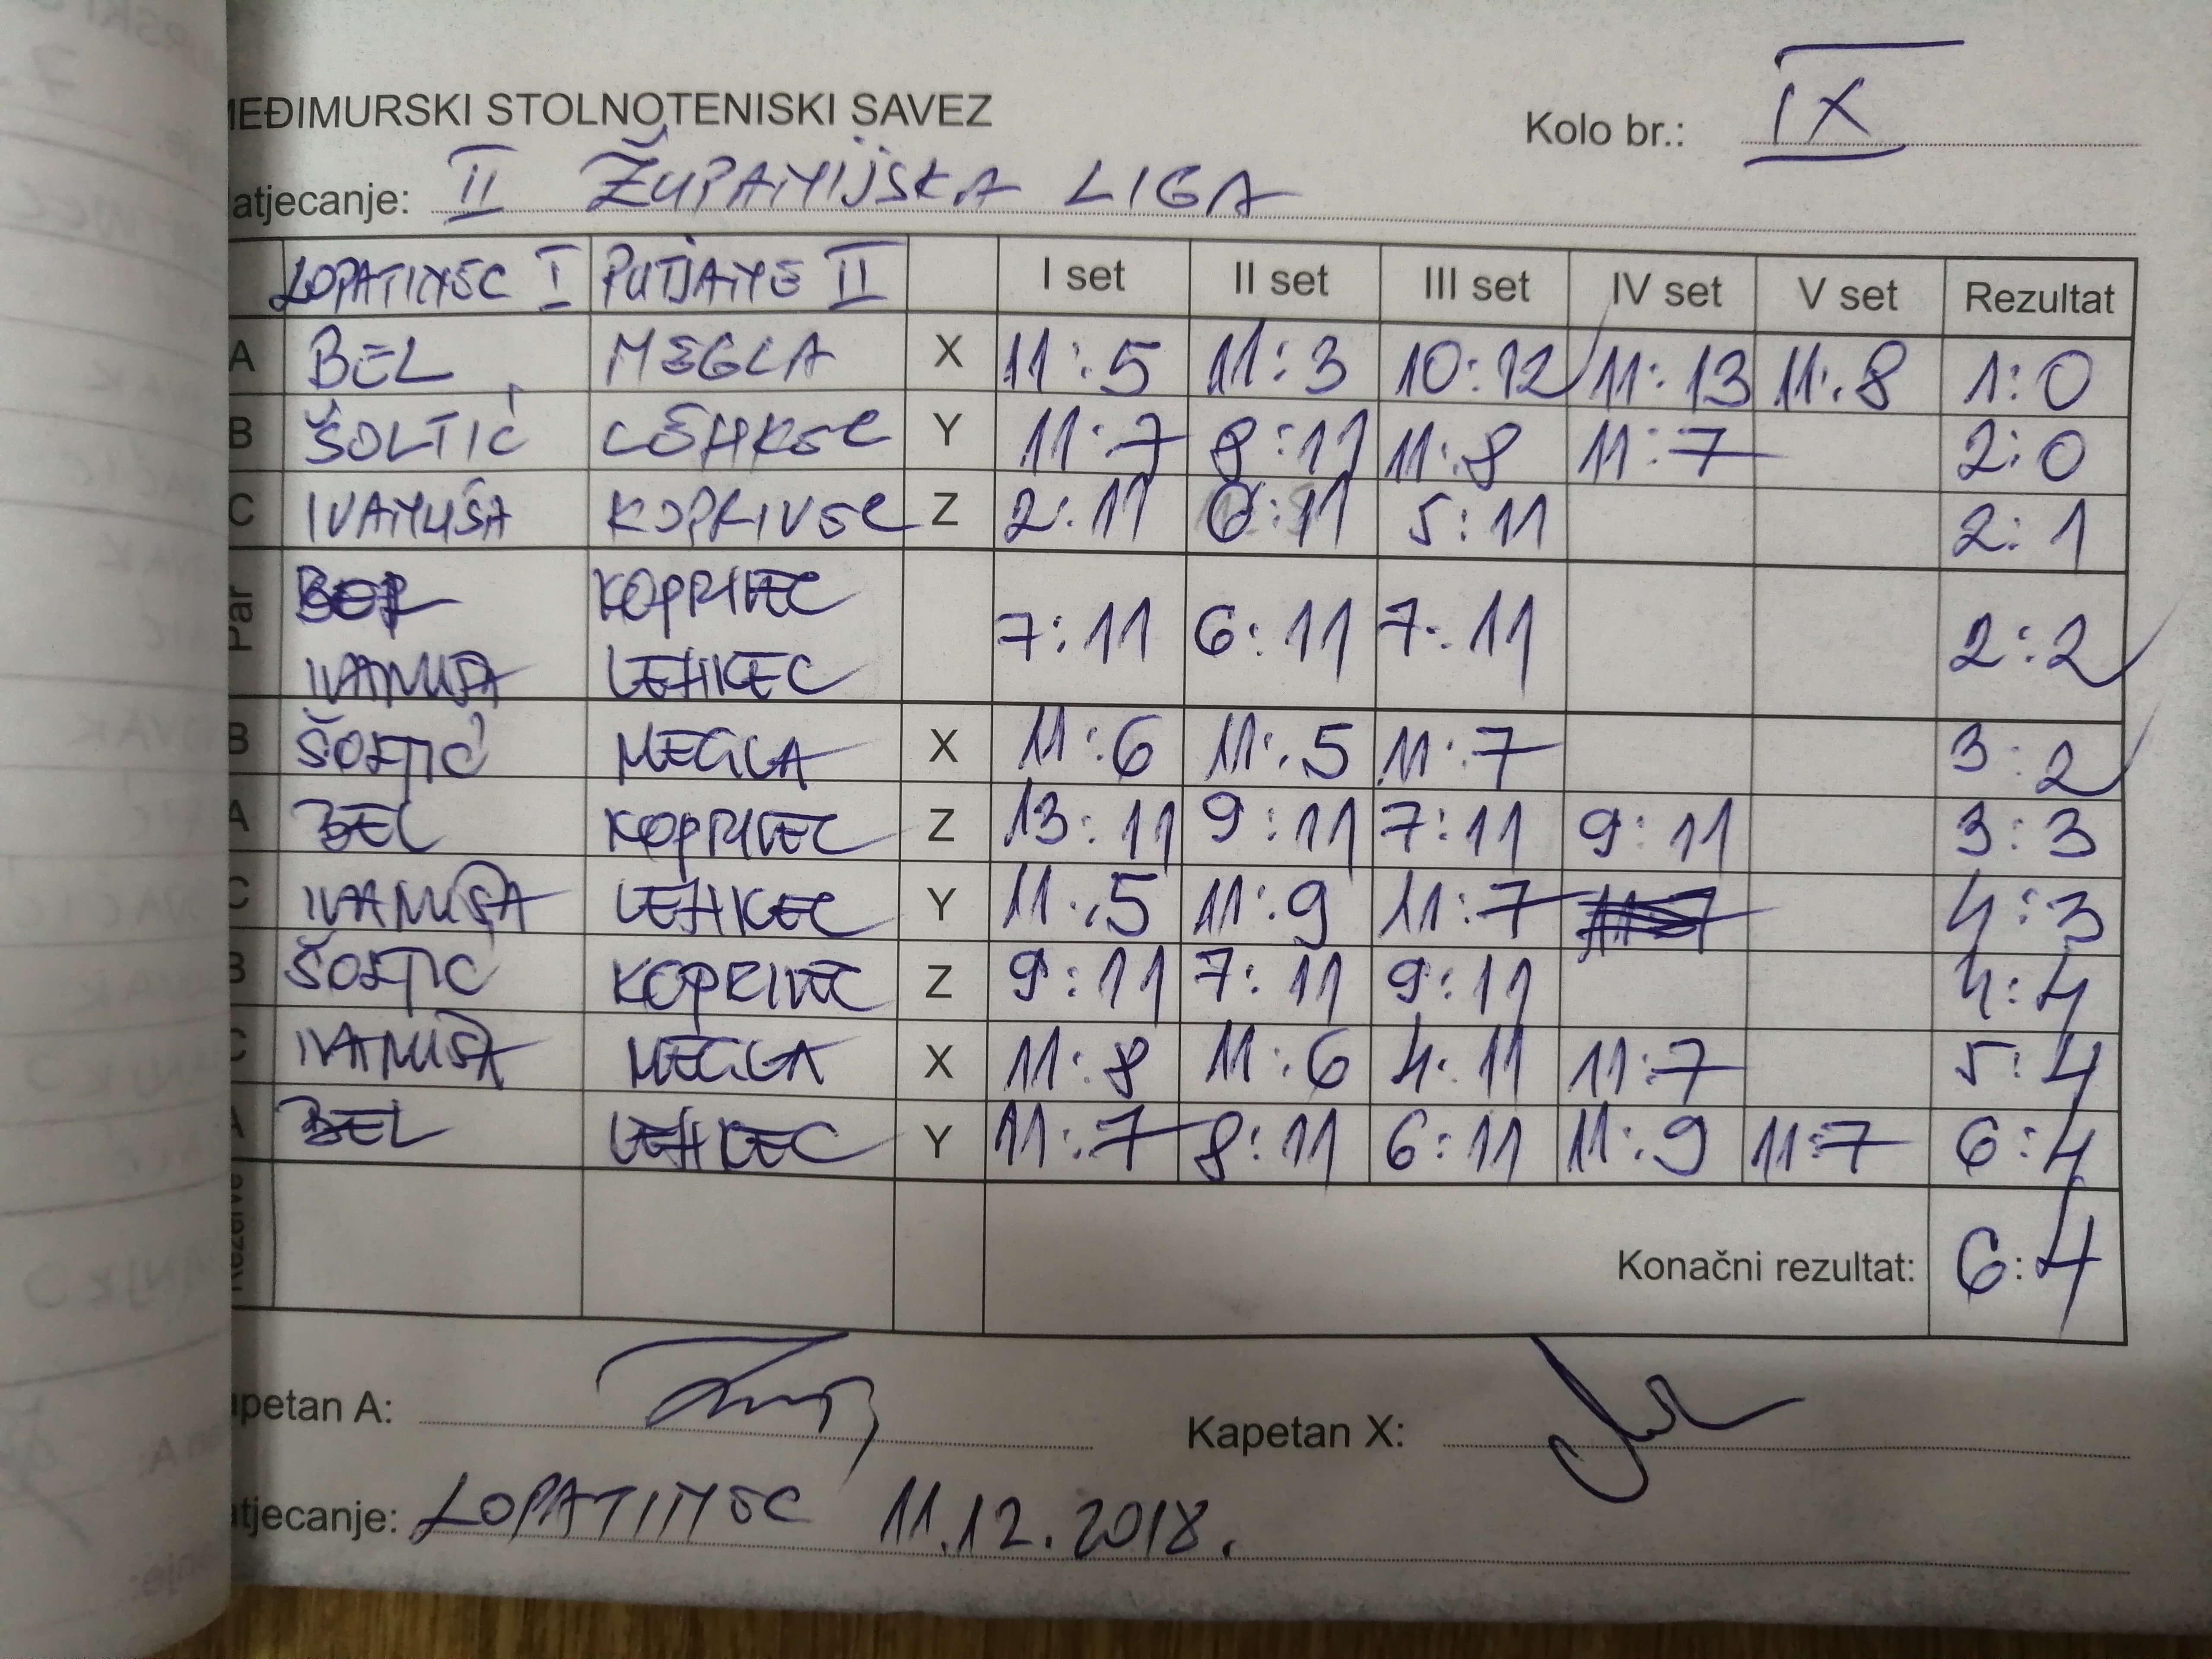 MEĐIMURSKI STOLNOTENISKI SAVEZ
Kolo br.: IX
atjecanje: II ŽUPANIJSKA LIGA
LOPATINEC I PUTJANE II I set II set III set IV set V set Rezultat
A BEL MEGLA X 11:5 11:3 10:12 11:13 11:8 1:0
B ŠOLTIĆ LEHKEC Y 11:7 8:11 11:8 11:7 2:0
C IVANUŠA KOPRIVEC Z 2:11 6:11 5:11 2:1
Par BEL KOPRIVEC
7:11 6:11 7:11 2:2
IVANUŠA LEHKEC
B ŠOLTIĆ MEGLA X 11:6 11:5 11:7 3:2
A BEL KOPRIVEC Z 13:11 9:11 7:11 9:11 3:3
C IVANUŠA LEHKEC Y 11:5 11:9 11:7 4:3
B ŠOLTIC KOPRIVEC Z 9:11 7:11 9:11 4:4
C IVANUŠA MEGLA X 11:8 11:6 4:11 11:7 5:4
A BEL LEHKEC Y 11:7 8:11 6:11 11:9 11:7 6:4
Rezerve
Konačni rezultat: 6:4
apetan A: Kapetan X:
atjecanje: LOPATINEC 11.12.2018.